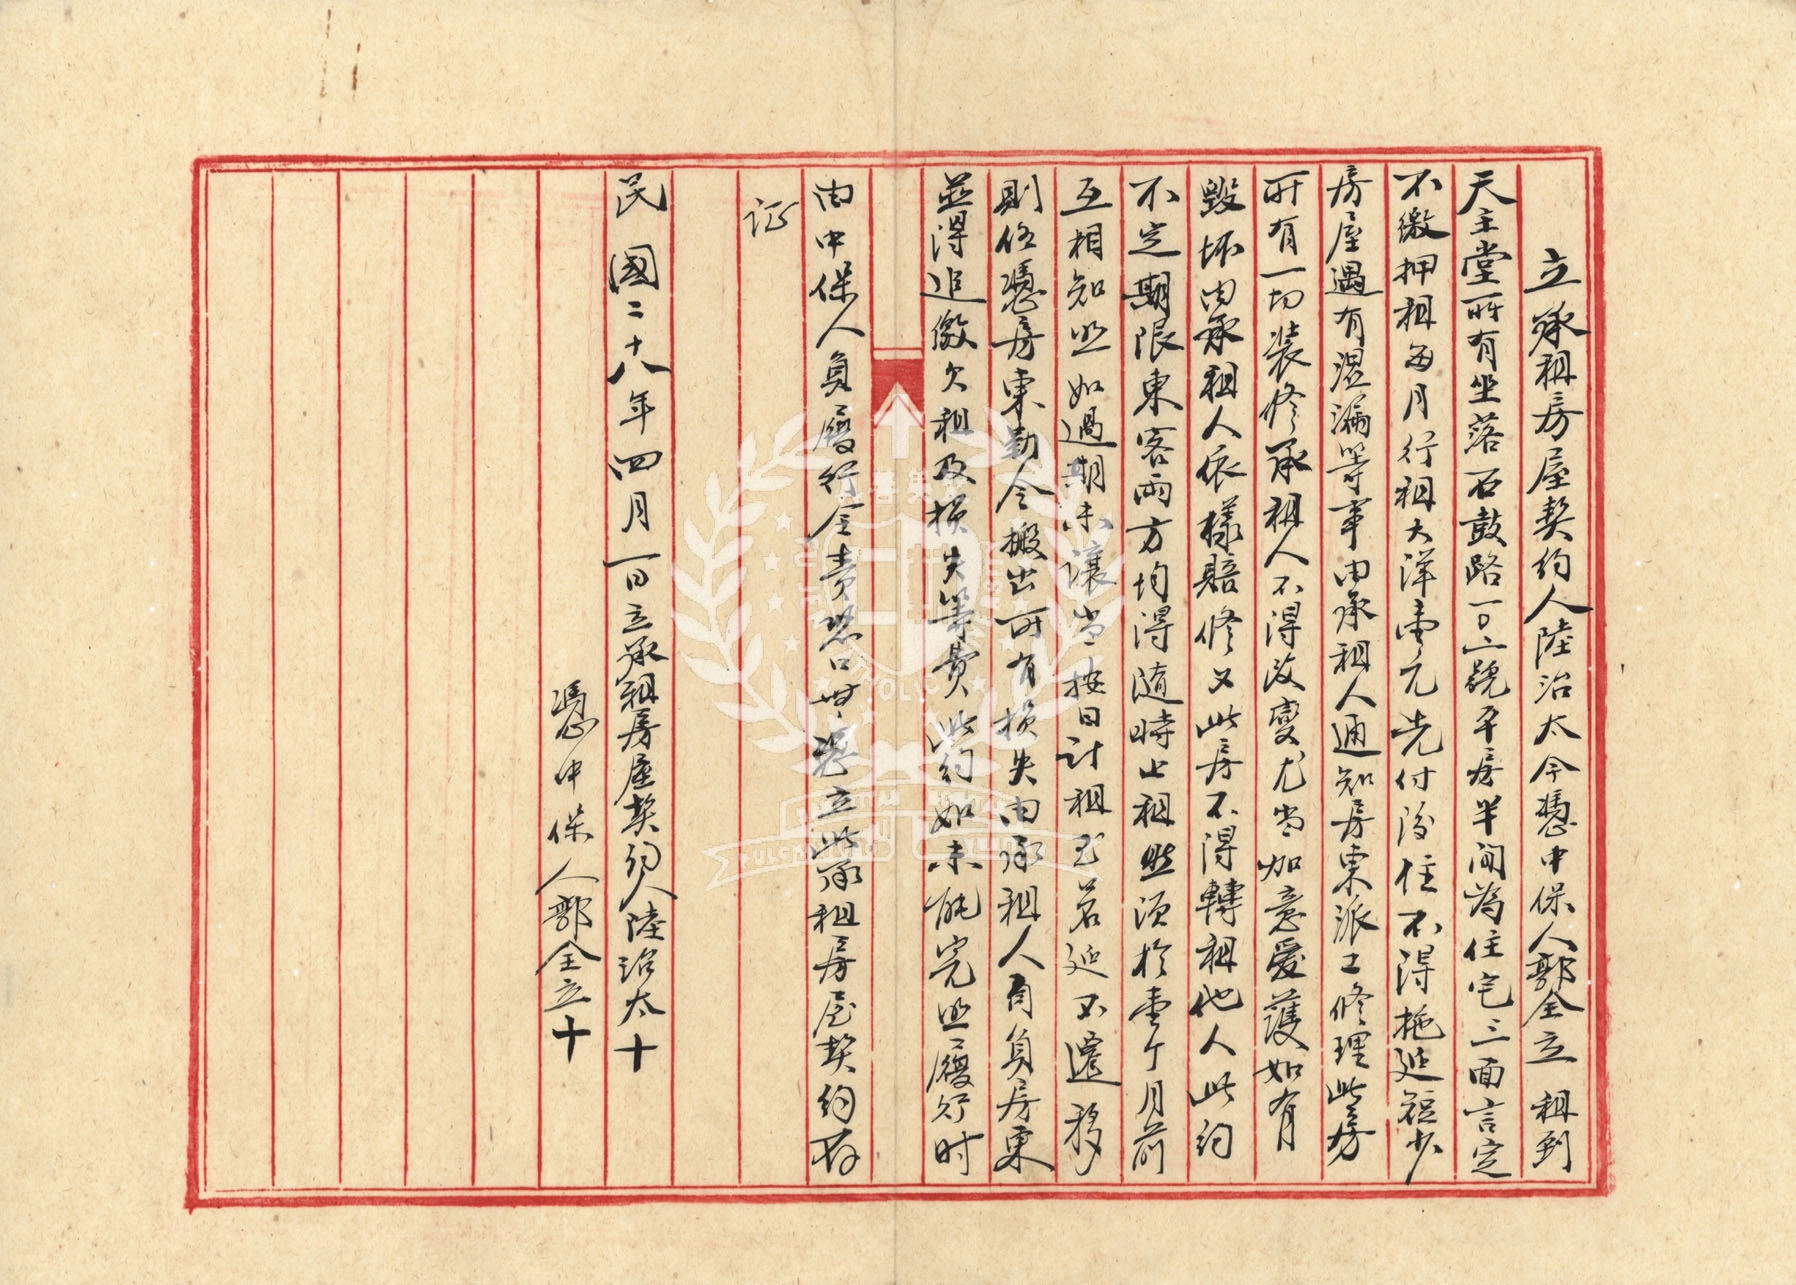 立承租房屋契約人陸治太今憑中保人鄒全立 租到
天主堂所有坐落石鼓路一〇二號平房半間為住宅三面言定
不繳押租每月行租大洋壹元先付後住不得拖延短少
房屋遇有滲漏等事由承租人通知房東派工修理此房
所有一切裝修承租人不得改變尤當加意愛護如有
毀坏由承租人依樣賠修又此房不得轉租他人此約
不定期限東客兩方均得隨時止租然須於壹个月前
互相知照如過期未讓當按日計租至若延不遷移
則任憑房東勒令搬出所有損失由承租人自負房東
並得追繳欠租及損失等費此約如未能完照履行时
由中保人負履行全責恐口無憑立此承租房屋契約存
证
民國二十八年四月一日立承租房屋契約人陸治太十
憑中保人鄒全立十